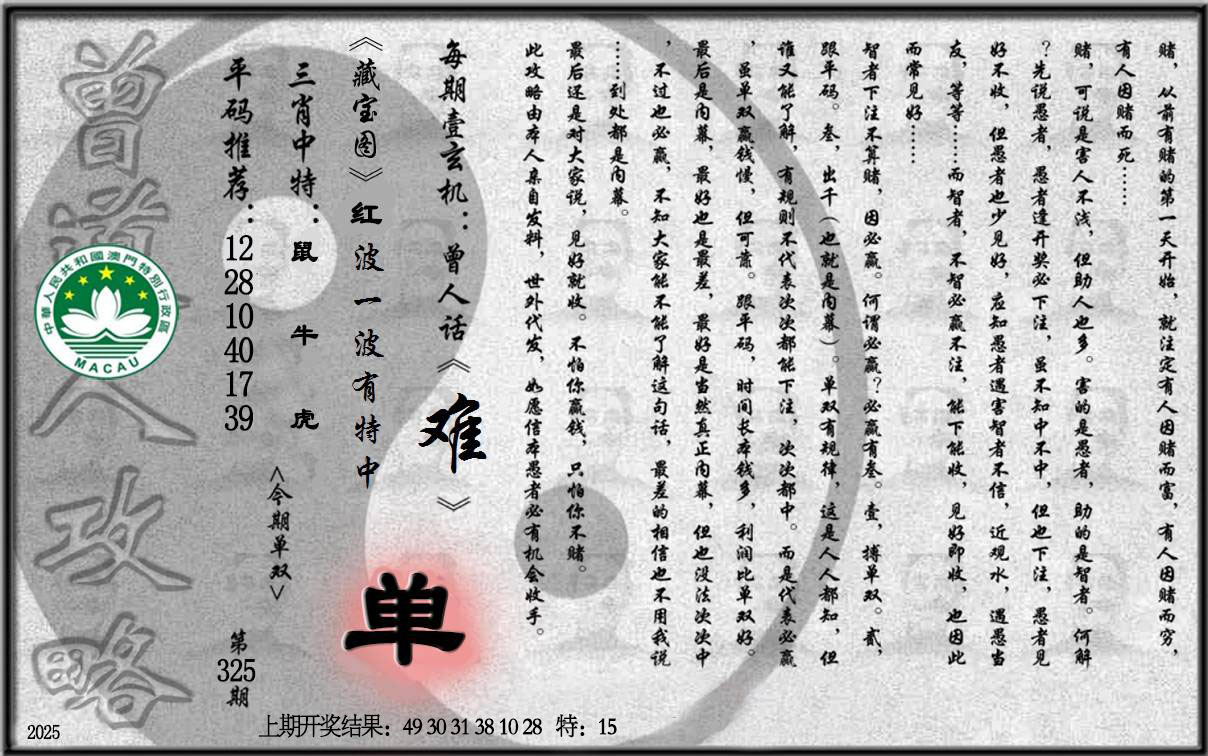 赌，从前有赌的第一天开始，就注定有人因赌而富，有人因赌而穷，
有人因赌而死……
赌，可说是害人不浅，但助人也多。害的是愚者，助的是智者。何解
？先说愚者，愚者逢开奖必下注，虽不知中不中，但也下注，愚者见
好不收，但愚者也少见好，应知愚者遇害智者不信，近观水，遇愚当
友，等等……而智者，不智必赢不注，能下能收，见好即收，也因此
而常见好……
智者下注不算赌，因必赢。何谓必赢？必赢有叁。壹，搏单双。贰，
跟平码。叁，出千（也就是内幕）。单双有规律，这是人人都知，但
谁又能了解，有规则不代表次次都能下注，次次都中。而是代表必赢
，虽单双赢钱慢，但可靠。跟平码，时间长本钱多，利润比单双好。
最后是内幕，最好也是最差，最好是当然真正内幕，但也没法次次中
，不过也必赢，不知大家能不能了解这句话，最差的相信也不用我说
……到处都是内幕。
最后还是对大家说，见好就收。不怕你赢钱，只怕你不赌。
此攻略由本人亲自发料，世外代发，如愿信本愚者必有机会收手。
每期壹玄机：曾人话《难》
《藏宝图》红波一波有特中
单
三肖中特：鼠牛虎
<今期单双>
平码推荐：12 28 10 40 17 39
第325期
曾道人攻略
中華人民共和國澳門特別行政區
MACAU
上期开奖结果：49 30 31 38 10 28 特：15
2025